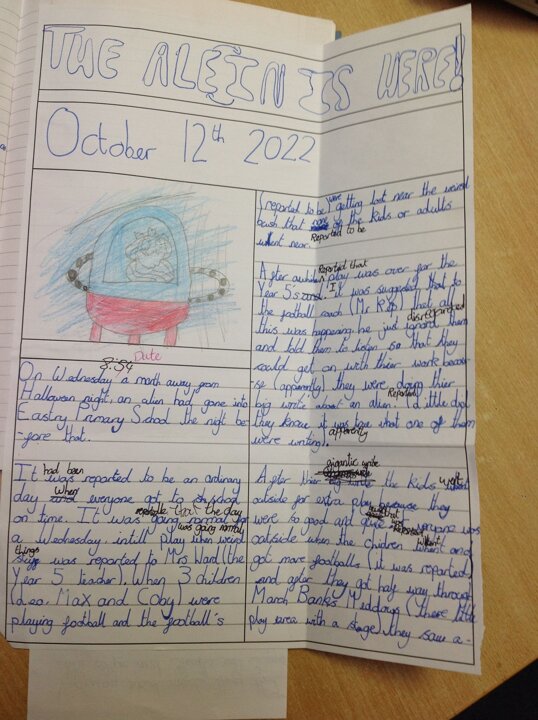 THE ALEIN IS HERE!
October 12th 2022
Date
8:54
On Wednesday a month away from
Halloween night, an alien had gone into
Eastry Primary School the night be-
fore that.
had been
It was reported to be an ordinary
when
day everyone got to school
reported that the day
on time. It was going normal for
was going normal
a Wednesday, intill play when weird
things
was reported to Mrs Ward (the
Year 5 teacher). When 3 children
(Leo, Max and Coby) were
playing football and the football's
were
(reported to be) getting lost near the weird
bush that none of the kids or adults
Reported to be
went near.
Reported that
After play was over for the
Year 5's it was suggested that to
the football coach (Mr ) that all
disregarded
this was happening he just ignord them
and told them to listen so that they
could get on with their work becau-
se (apparently) they were doing thier
Reported
big write about an alien. Little did
they know it was true what one of them
apparently
were writing.
gigantic write
After their big write the kids went
outside for extra play because they
were so good and everyone was
Reported
outside when the children went and
got more footballs (it was reported)
and after they got half way through
March Banks Meddows (there little
play area with a stage) they saw a-